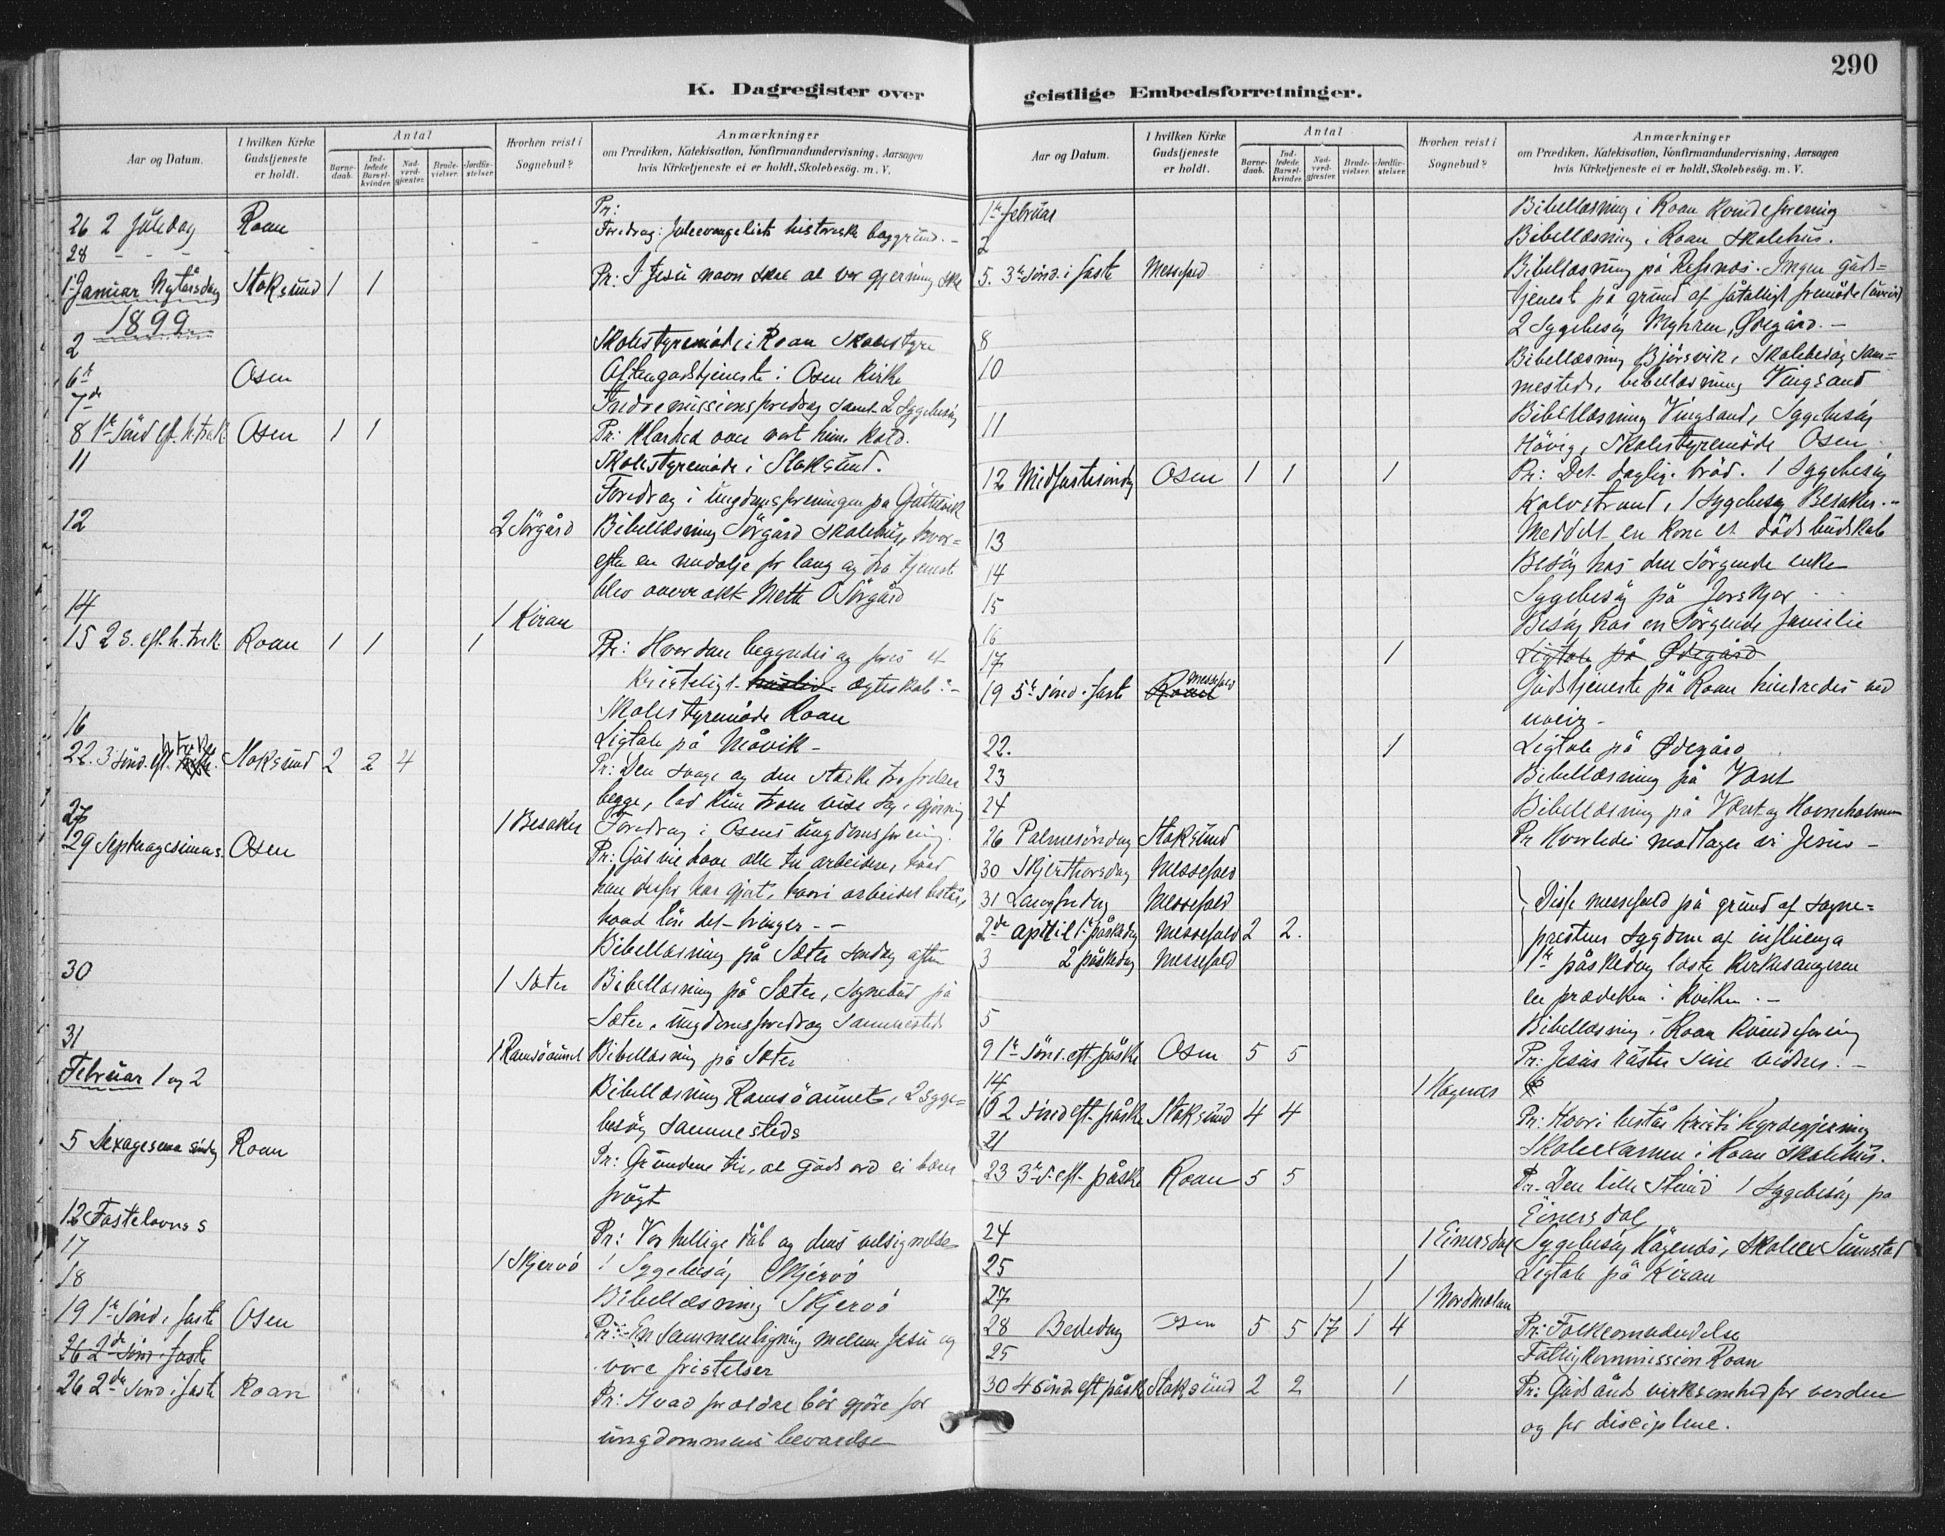 290
K. Dagregister over geistlige Embedsforretninger.
Aar og Datum.
I hvilken Kirke Gudstjeneste er holdt.
Antal
Barne-daab.
Ind-ledede Barsel-kvinder.
Nad-verd-gjæster.
Brude-vielser.
Jordfæ-stelser.
Hvorhen reist i Sognebud?
Anmærkninger
om Prædiken, Katekisation, Konfirmandundervisning, Aarsagen
hvis Kirketjeneste ei er holdt, Skolebesøg. m. V.
26 2 Juledag Roan Pr:
28 Foredrag: Juleevangeliets historiske baggrund. -
1 Januar Nytårsdag Stoksund 1 1 Pr: I Jesu navn skal al vor gjerning ske
1899
2 Skolestyremöde i Roan Skolestyre
6te Osen Aftengudstjeneste i Osen Kirke
7de Indremissionsforedrag samt 2 Sygebesög
8 1ste Sönd ef. h. trek. Osen 1 1 Pr:
11 Skolestyremöde i Stoksund.
Foredrag i ungdomsforeningen på
12 2 Sörgård Bibellæsning Sörgård Skolehus, hvor=
efter en medalje for lang og tro tjeneste
blev overrakt Mette O Sörgård
14 1 Kiran
15 2 S. eft. h. trek. Roan 1 1 1 Pr: Hvordan begyndes og föres et
kristeligt ægteskab? -
16 Skolestyremöde Roan
Ligtale på Måvik -
22. 3 sönd. eft. Stoksund 2 2 4 Pr: Den svage og den stærke tro
begge, lad kun troen vise sig i gjerning
27 1 Besaker Foredrag i Osens ungdomsforening.
29 Septuagesimas. Osen Pr: Gud vil have alle til arbeidere, hvad
han derfor har gjort, hvori arbeidet består,
hvad lön det bringer - -
Bibellæsning på Sæter söndag aften
30 1 Sæter Bibellæsning på Sæter, Sognebud på
Sæter, ungdomsforedrag sammesteds
31 1 Ramsöaunet Bibellæsning på Sæter
Februar 1 og 2 Bibellæsning Ramsöaunet, 2 syge=
besög sammesteds
5 Sexagesema söndag Roan Pr: Grundene til, at Guds ord ei bær
frugt
12 Fastelavns S Pr: Vor hellige dåb og dens velsignelse
17 1 Skjervö 1 Sygebesög Skjervö
18 Bibellæsning Skjervö
19 1ste Sönd i faste Osen Pr: En sammenligning mellem Jesu og
26 2de sönd i faste vore fristelser
26 2de sönd i faste Roan Pr: Hvad forældre bör gjöre for
ungdommens bevarelse
Aar og Datum.
I hvilken Kirke Gudstjeneste er holdt.
Antal
Barne-daab.
Ind-ledede Barsel-kvinder.
Nad-verd-gjæster.
Brude-vielser.
Jordfæ-stelser.
Hvorhen reist i Sognebud?
Anmærkninger
om Prædiken, Katekisation, Konfirmandundervisning, Aarsagen
hvis Kirketjeneste ei er holdt, Skolebesøg. m. V.
1ste februar Bibellæsning i Roan Kvindeforening
2 Bibellæsning i Roan Skolehus.
5. 3de sönd. i faste Messefald Bibellæsning på Refsnes. Ingen guds=
tjeneste på grund af fåtalligt fremöde (uveir)
8 2 Sygebesög Myhren, Ödegård. -
10 Bibellæsning Björsvik, Skolebesög sam=
mesteds, bibellæsning Vingsand
11 Bibellæsning Vingsand, Sygebesög
Hövig, Skolestyremöde Osen
12 Midfastesöndag Osen 1 1 1 Pr: Det daglige bröd. 1 Sygebesög
Kalvstrand, 1 sygebesög Besaker. -
13 Meddelt en kone et dödsbudskab
14 Besög hos den sörgende enke
15 Sygebesög på
16 Besög hos en sörgende familie
17 1 Ligtale på Ödegård
19 5te sönd i faste Roan Messefald Gudstjeneste på Roan hindredes ved
uveir -
22. 1 Ligtale på Ödegård
23 Bibellæsning på
24 Bibellæsning på og Havneholmen
26 Palmesöndag Stoksund Pr Hvorledes modtages vi Jesus -
30 Skjærthorsdag Messefald
31 Langfredag Messefald Disse messefald på grund af sogne=
2de april 1ste påskedag Messefald 2 2. prestens sygdom af influenza
3 2 påskedag Messefald 1ste påskedag læste kirkesangeren
en prædiken i kirken. -
5 Bibellæsning i Roan Kvindeforening
9 1ste sönd. eft. påske Osen 5 5 Pr: Jesus sine vidner. -
14 1 Hagenæs
16 2 sönd eft. påske Stoksund 4 4 Pr: Hvori består Kristi hyrdegjerning
21 Skoleexamen i Roan Skolehus.
23 3de S. eft. påske Roan 5 5 Pr. Den lille stund 1 Sygebesög på
Einersdal
24 1 Einersdal Sygebesög Hagenæs, Skoleex Sumstad
25 1 Ligtale på Kiran
27 1 1 Nordmelan
28 Bededag Osen 5 5 17 1 4 Pr: Folkeomvendelse
25 Fattigkommission Roan
30 4 sönd. eft påske Stoksund 2 2 1 Pr: Guds ånds virksomhed for verden
og for disciplene.